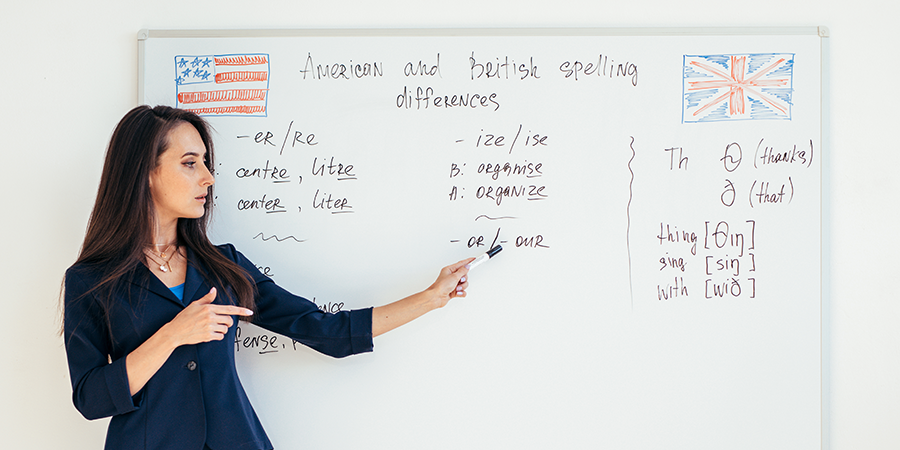 American and British spelling
differences
-ER/RE
: centre, litre
: center, liter
- ize/ise
B: organise
A: organize
- OR/- OUR
Th θ (thanks)
ð (that)
thing [θıŋ]
sing [sıŋ]
with [wıð]